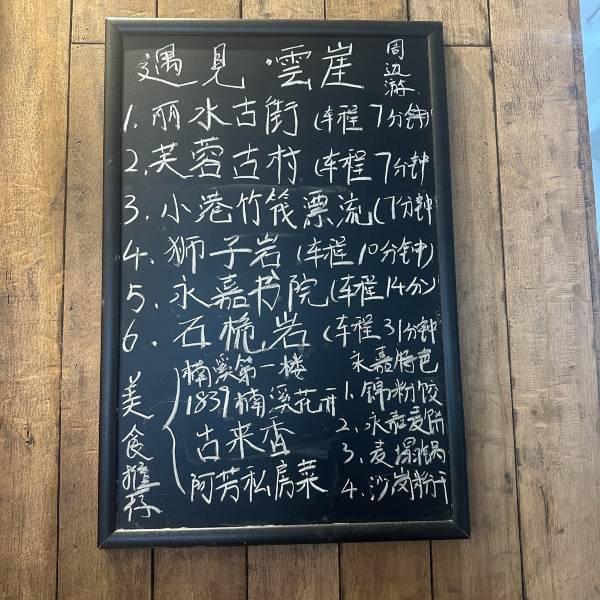 遇見·雲崖 周边游
1. 丽水古街 (车程 7分钟)
2. 芙蓉古村 (车程 7分钟
3. 小港竹筏漂流 (7分钟
4. 狮子岩 (车程 10分钟)
5. 永嘉书院 (车程 14分)
6. 石桅岩 (车程 31分钟
美食推荐
楠溪第一楼
1839楠溪花开
古来香
阿芳私房菜
永嘉特色
1. 锦粉饺
2. 永嘉麦饼
3. 麦塌锅
4. 沙岗粉干